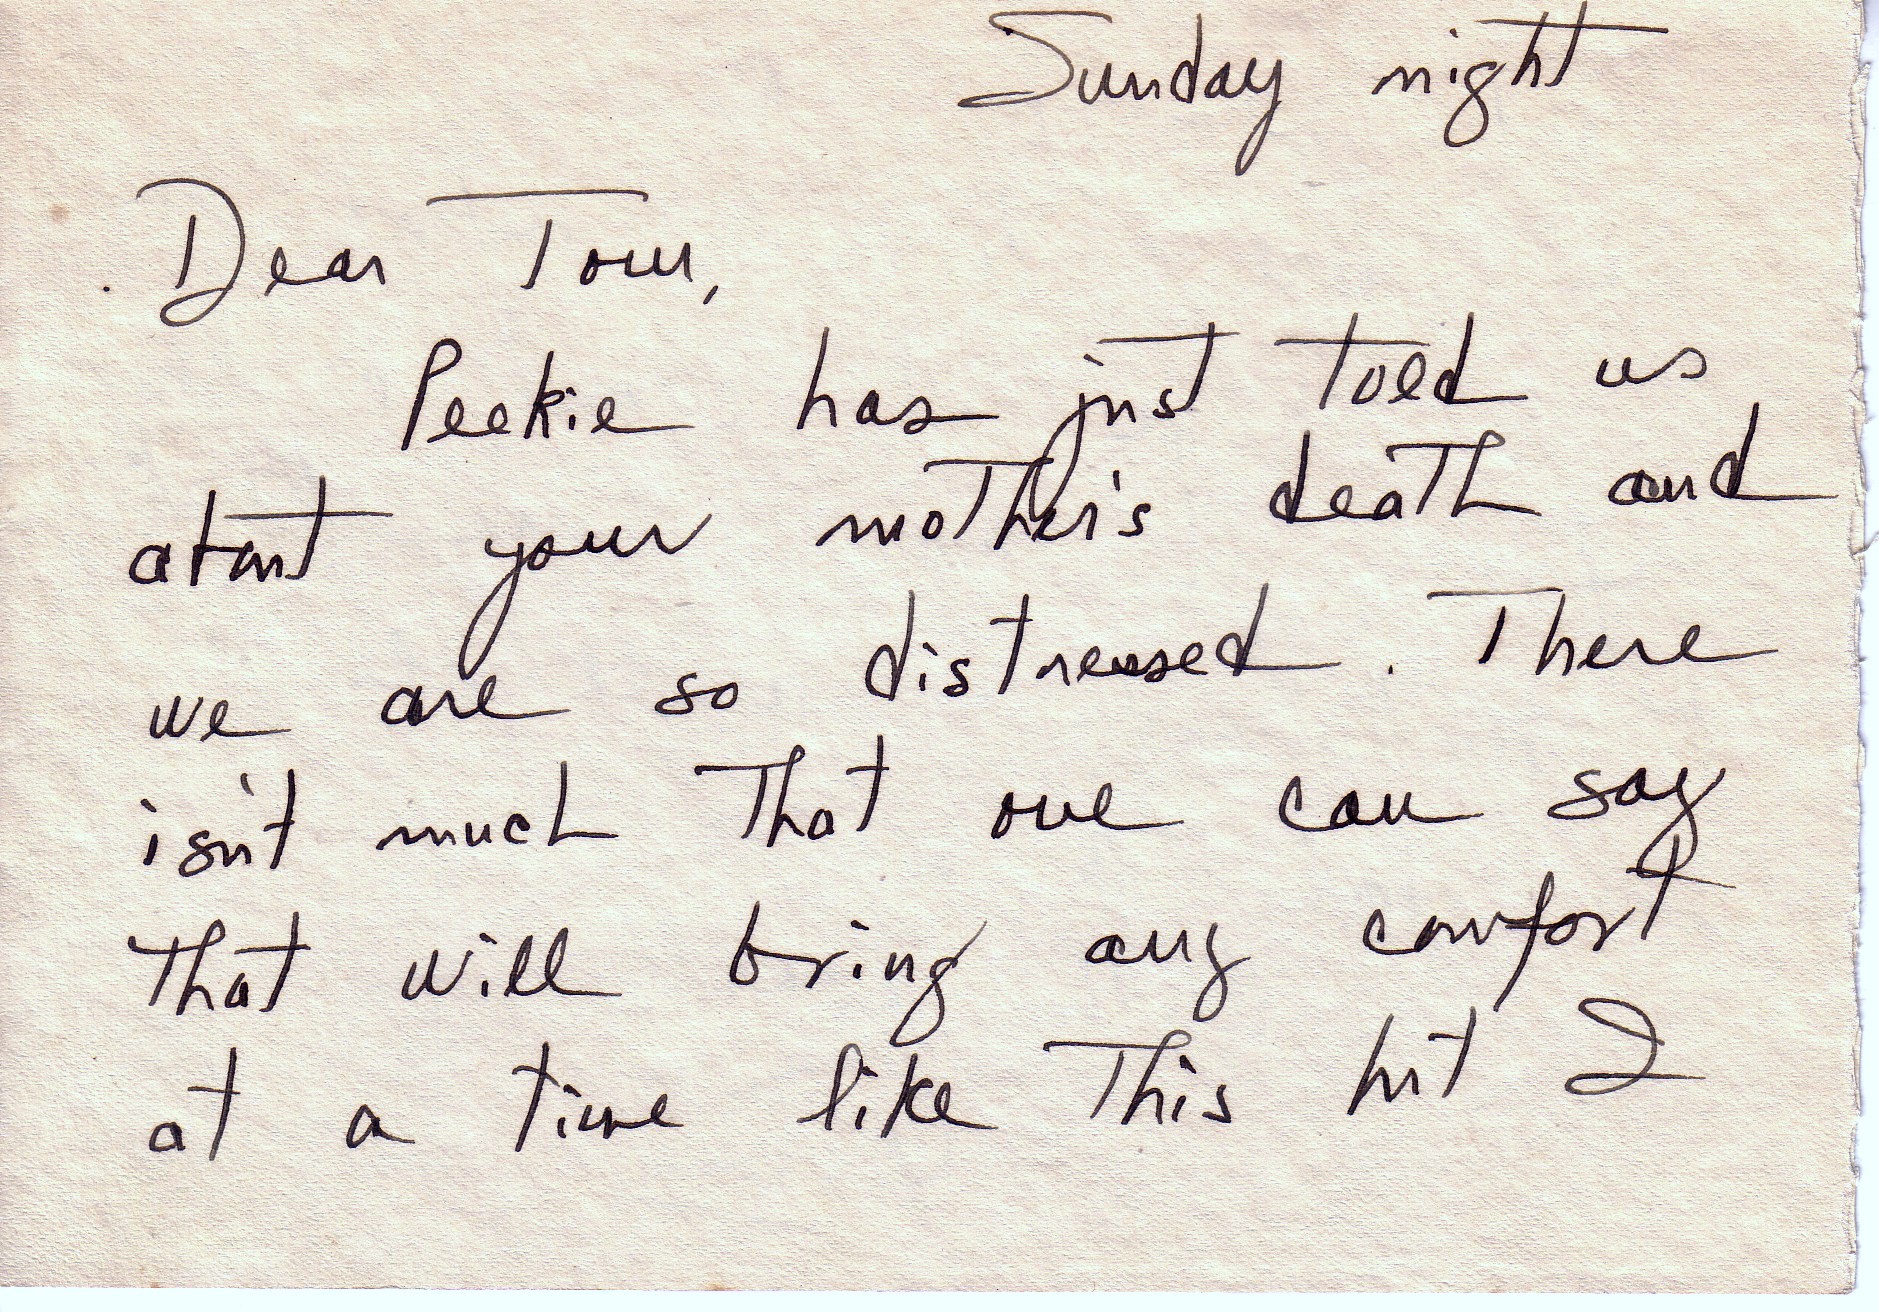 Sunday night
Dear Tom,
Peekie has just told us
about your mother's death and
we are so distressed. There
isn't much that one can say
that will bring any comfort
at a time like this but I